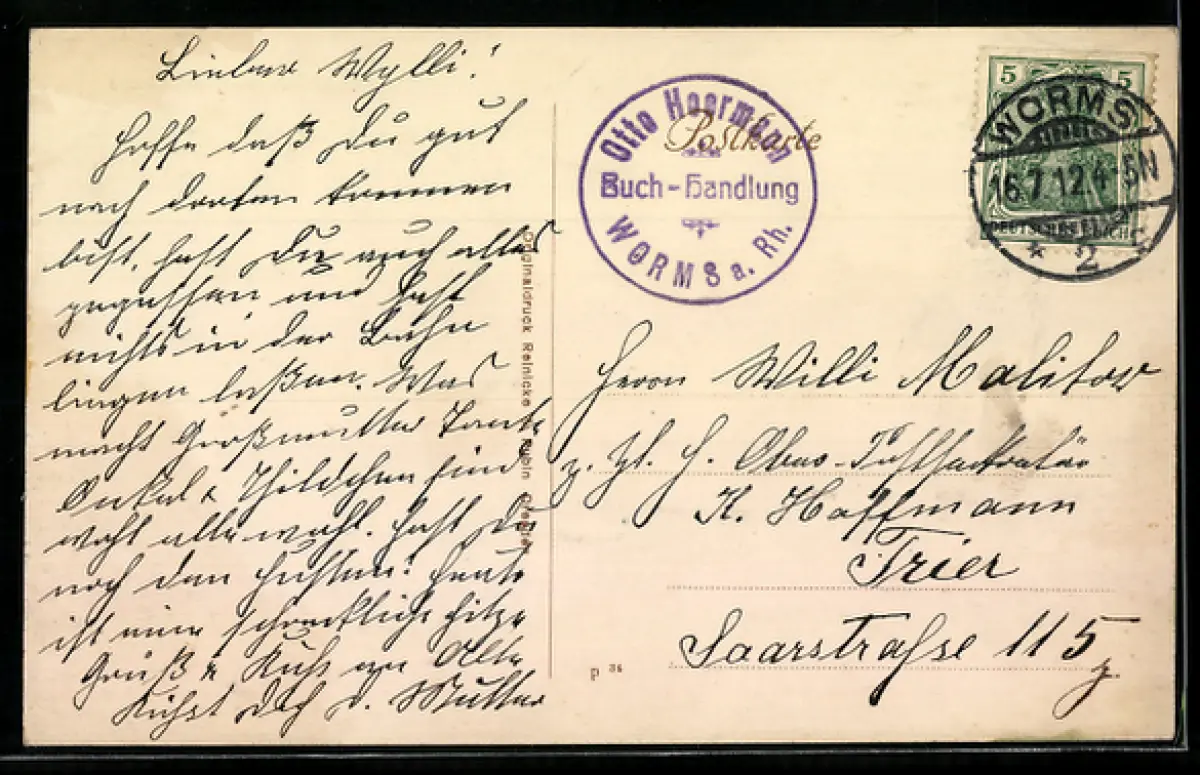 Lieber Wylli!
Hoffe daß Du gut
nach dorten kommen
bist, hast Du auch alles
gegessen und hast
nichts in der Bahn
liegen laßen. Was
macht Großmutter Tante
Onkel & Thildchen sind
wohl alle wohl. Hast Du
noch den Husten? Heute
ist eine schreckliche Hitze
Gruß & Kuss an Alle
Küsst Dich d. Mutter
Originaldruck Reinicke & Rubin Dresden
Otto Hoermann
Buch-Handlung
WORMS a. Rh.
Postkarte
5 5
DEUTSCHES REICH
WORMS
16.7.12.4-5N
* 2 c
Herrn Willi Malitor
z. Zt. H. Ober-Postsekretär
K. Hoffmann
Trier
Saarstraße 115
p 36